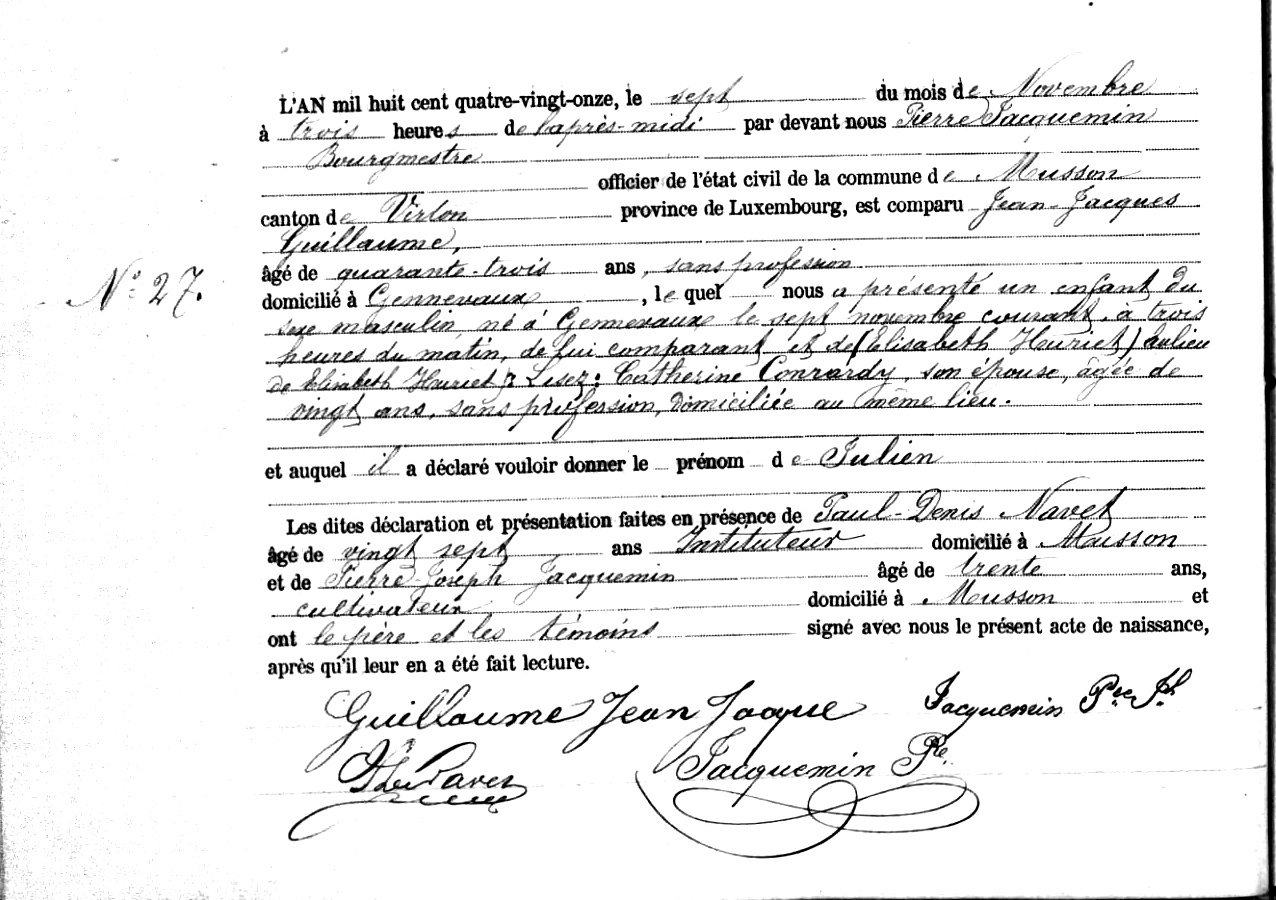 L'AN mil huit cent quatre-vingt-onze, le sept du mois de Novembre
à trois heures de l'après-midi par devant nous Pierre Jacquemin
Bourgmestre
officier de l'état civil de la commune de Musson
canton de Virton province de Luxembourg, est comparu Jean-Jacques
Guillaume,
âgé de quarante-trois ans, sans profession
N° 27.
domicilié à Gennevaux, le quel nous a présenté un enfant du
sexe masculin né à Gennevaux le sept novembre courant, à trois
heures du matin, de lui comparant et de (Elisabeth Houriet) au lieu
de Elisabeth Houriet, Lisez: Catherine Conrardy, son épouse, âgée de
vingt ans, sans profession, domiciliée au même lieu.
et auquel il a déclaré vouloir donner le prénom de Julien
Les dites déclaration et présentation faites en présence de Paul-Denis Navet
âgé de vingt sept ans Instituteur domicilié à Musson
et de Pierre-Joseph Jacquemin âgé de trente ans,
cultivateur, domicilié à Musson et
ont le père et les témoins signé avec nous le présent acte de naissance,
après qu'il leur en a été fait lecture.
Guillaume Jean Jacque Jacquemin Pre Jh
Jacquemin Pre.